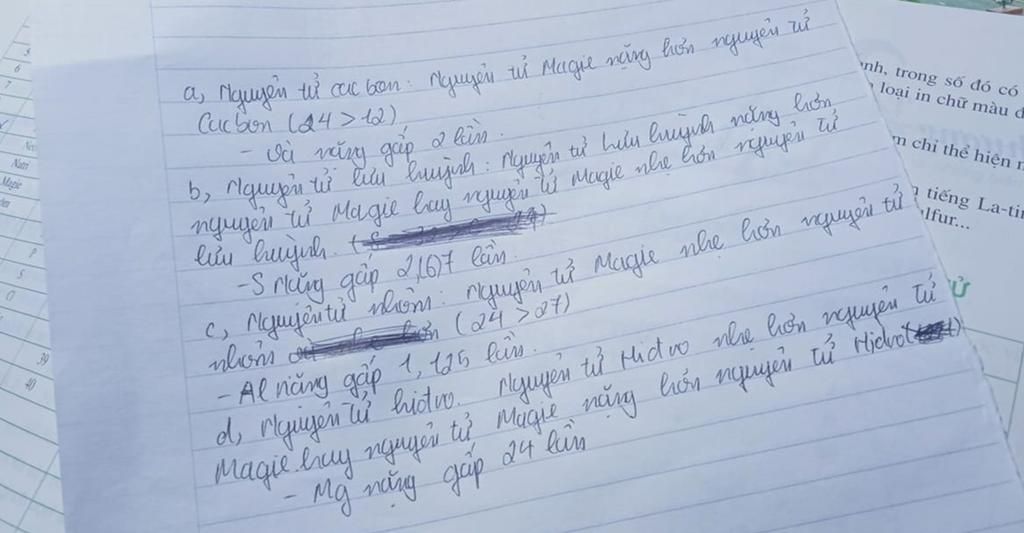 a, Nguyên tử cac bon: Nguyên tử Magie nặng hơn nguyên tử
Cacbon (24 > 12)
- Và nặng gấp 2 lần.
b, Nguyên tử lưu huỳnh: Nguyên tử lưu huỳnh nặng hơn
nguyên tử Magie hay nguyên tử Magie nhẹ hơn nguyên tử
lưu huỳnh.
- S nặng gấp 2,(6)7 lần.
c, Nguyên tử nhôm: Nguyên tử Magie nhẹ hơn nguyên tử
nhôm (24 > 27)
- Al nặng gấp 1,125 lần.
d, Nguyên tử hidro. Nguyên tử Hidro nhẹ hơn nguyên tử
Magie hay nguyên tử Magie nặng hơn nguyên tử Hidro
- Mg nặng gấp 24 lần
nh, trong số đó có
loại in chữ màu đ
m chỉ thể hiện
tiếng La-tin
lfur...
Ử
Magie
39
40